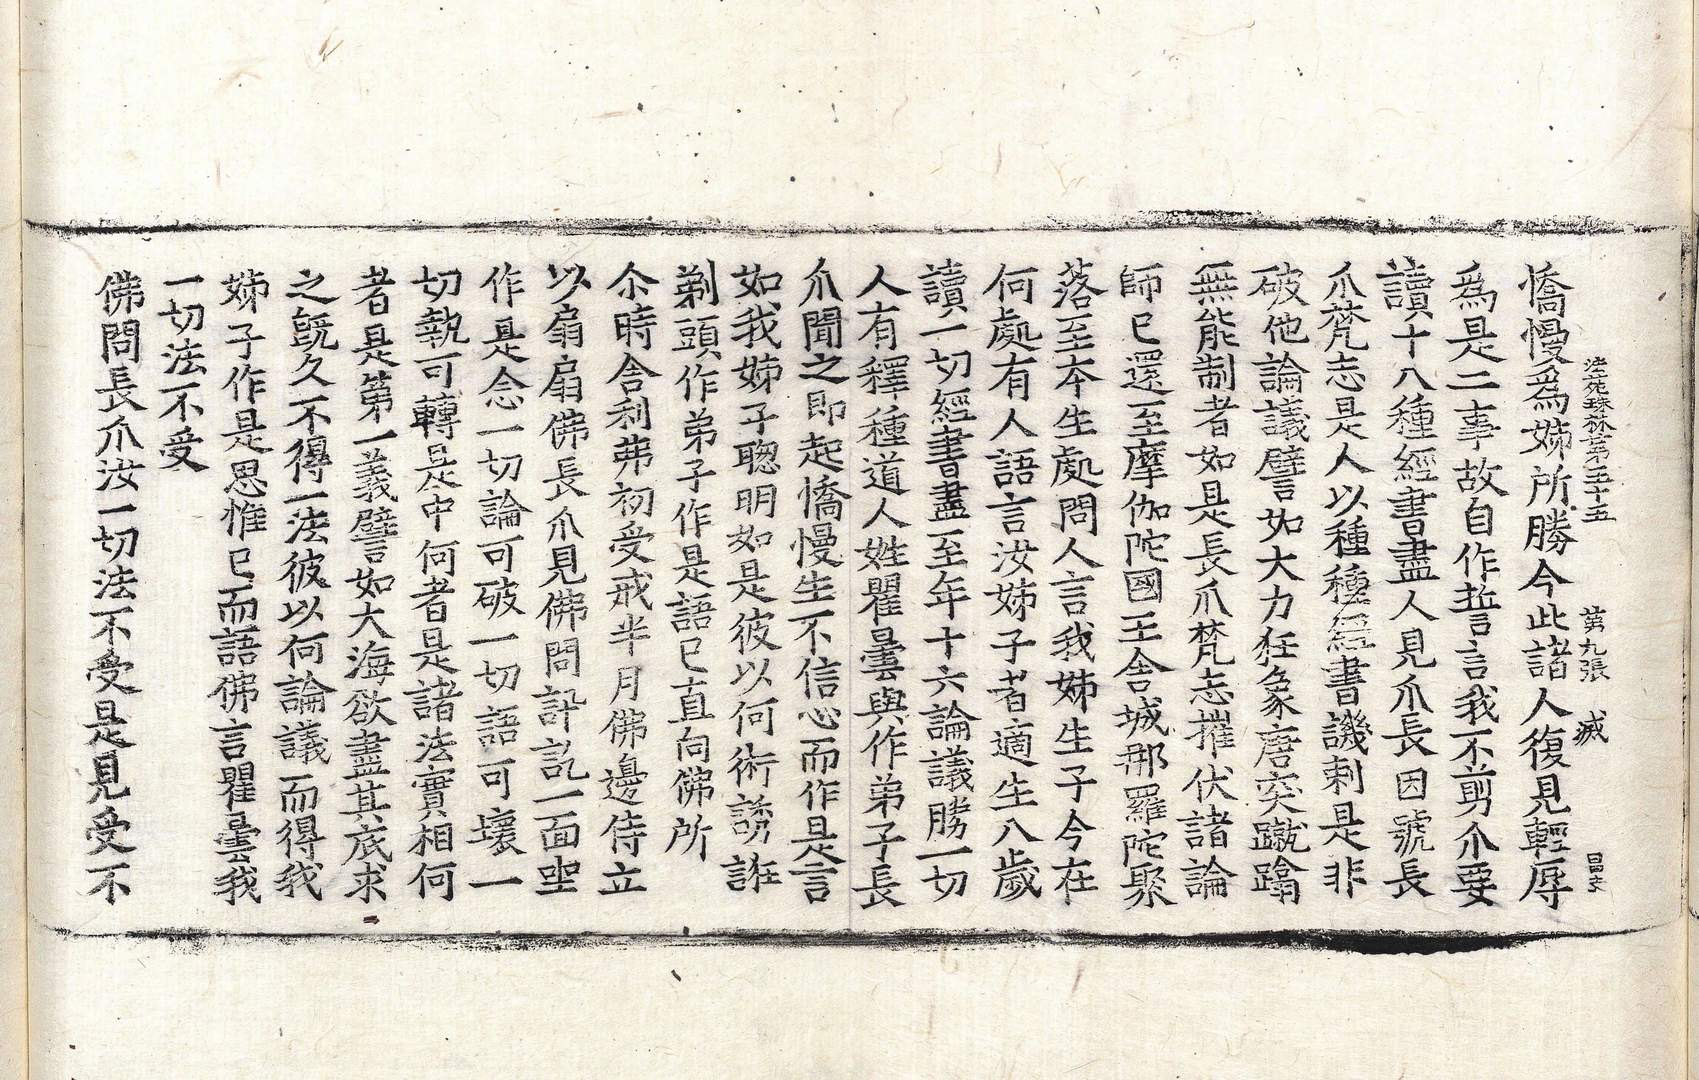 法苑珠林第五十五　第九張　㓕　昌文
憍慢爲姊所勝今此諸人復見輕辱
爲是二事故自作誓言我不剪爪要
讀十八種經書盡人見爪長因號長
爪梵志是人以種種經書譏刺是非
破他論議譬如大力狂象唐突蹴蹹
無能制者如是長爪梵志摧伏諸論
師已還至摩伽陀國王舍城那羅陀聚
落至本生處問人言我姊生子今在
何處有人語言汝姊子者適生八歲
讀一切經書盡至年十六論議勝一切
人有釋種道人姓瞿曇與作弟子長
爪聞之即起憍慢生不信心而作是言
如我姊子聦明如是彼以何術誘誑
剃頭作弟子作是語已直向佛所
尒時舍利弗初受戒半月佛邊侍立
以扇扇佛長爪見佛問訊訖一面坐
作是念一切論可破一切語可壞一
切執可轉是中何者是諸法實相何
者是第一義譬如大海欲盡其底求
之旣久不得一法彼以何論議而得我
姊子作是思惟已而語佛言瞿曇我
一切法不受
佛問長爪汝一切法不受是見受不